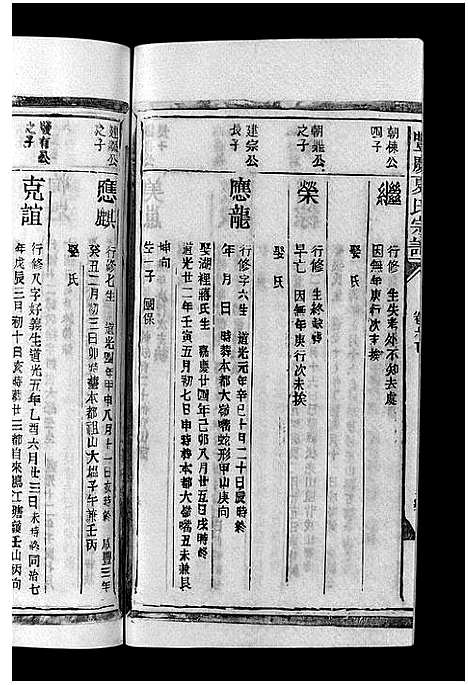 慶夏氏宗譜
朝倸公
四子
繼
行修 生失考外不知去處
因無年庚行次未挨
娶 氏
朝雄公
之子
榮
行修 生終缺詳
早亡 因無年庚行次未挨
娶 氏
建宗公
長子
應龍
行修字六生 道光元年辛巳十月二十日辰時終
年 月 日 時葬本都大嶺嘴蛇形甲山庚向
娶湖裡蔣氏生 嘉慶廿四年己卯八月廿五日戌時終
道光廿二年壬寅五月初七日申時葬本都大嶺嘴丑未兼艮
坤向
生一子 國保
之子
應麒
行修七生 道光四年甲申八月十一日亥時終 咸豐三年
癸丑二月初三日卯時葬本都祖山大塭子午兼壬丙
娶 氏
發有公
之子
克誼
行修八字好義生道光五年乙酉六月廿三日未時終同治七
年戊辰三月初十日亥時葬廿三都自來
嶺壬山丙向